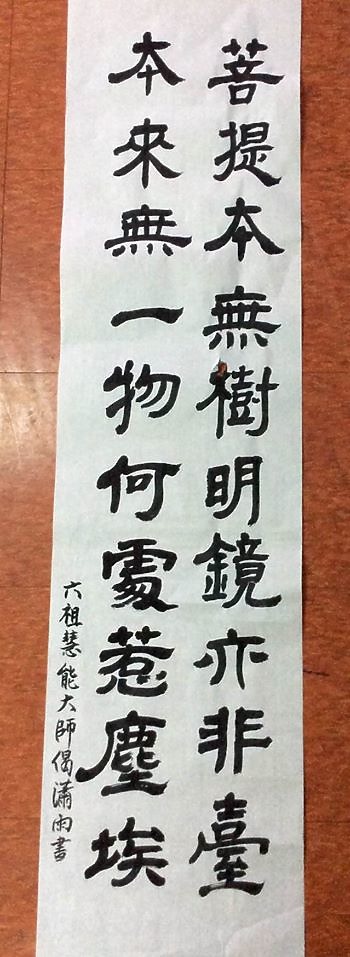 菩提本無樹明鏡亦非臺
本來無一物何處惹塵埃
六祖慧能大師偈瀟雨書